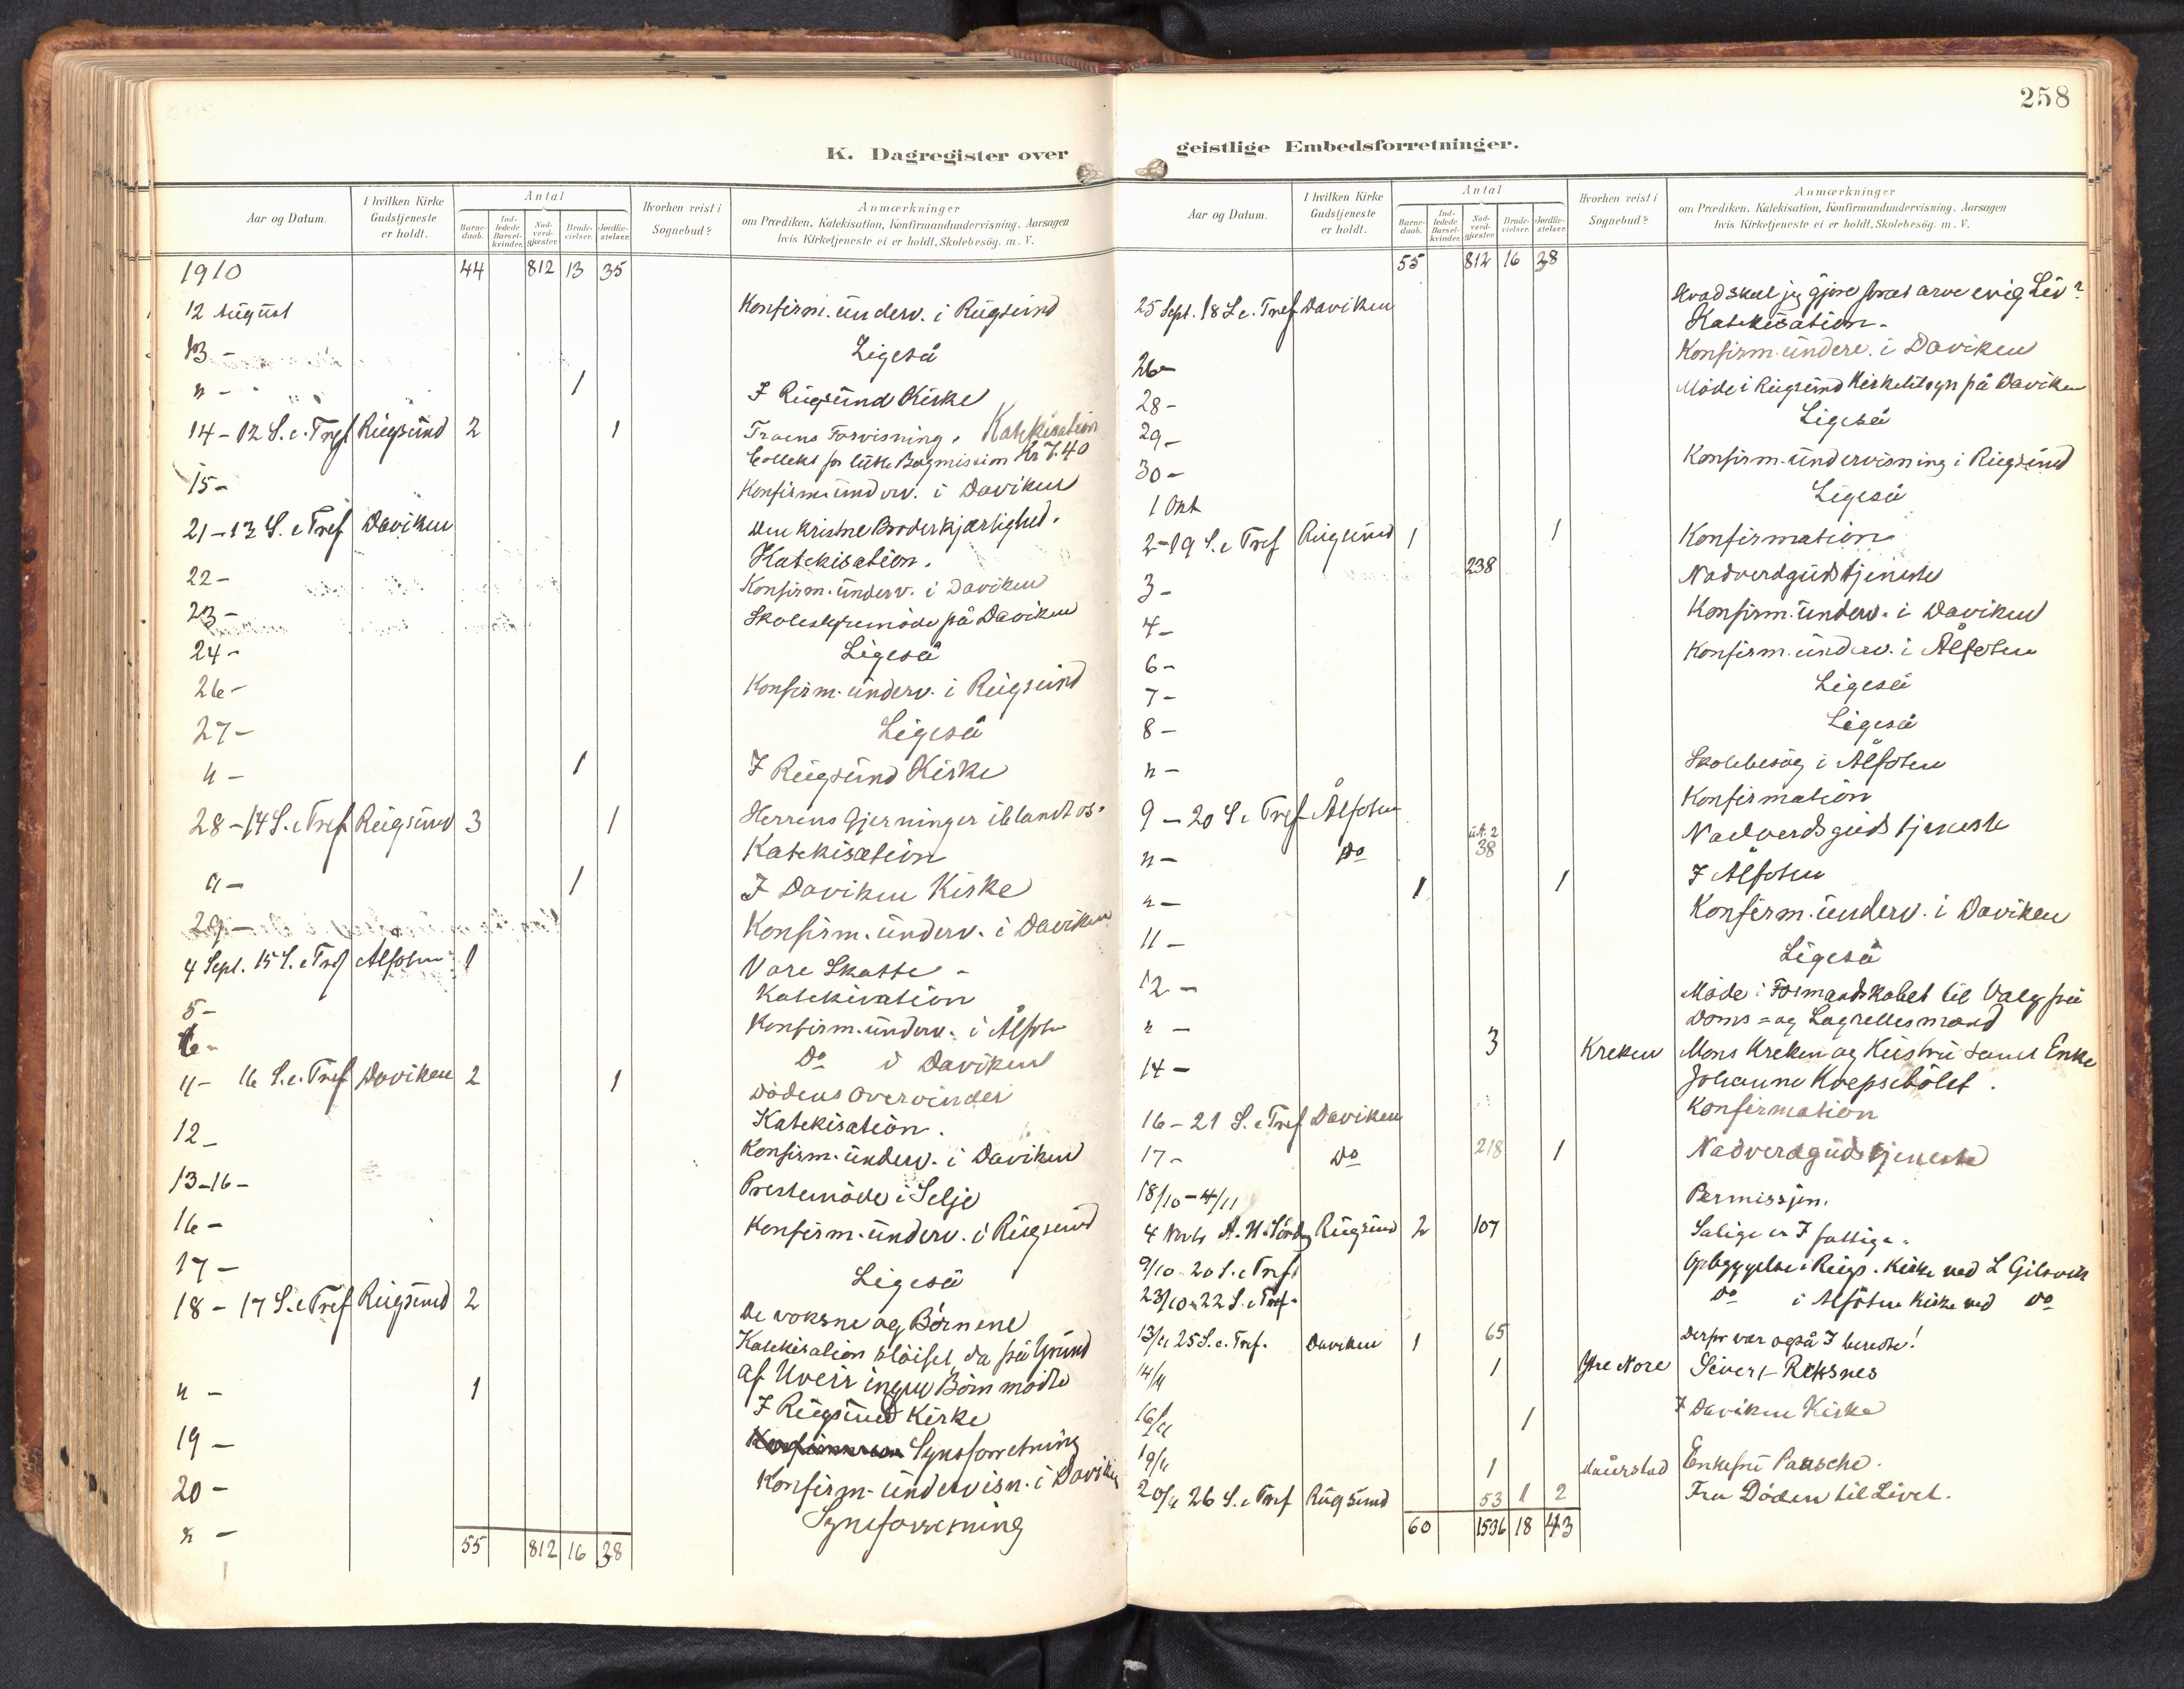 258
K. Dagregister over
geistlige Embedsforretninger.
Aar og Datum.
I hvilken Kirke Gudstjeneste er holdt.
Antal
Barne-daab.
Ind-ledede Barsel-kvinder.
Nad-verd-gjæster.
Brude-vielser.
Jordfæ-stelser.
Hvorhen reist i Sognebud?
Anmærkninger
om Prædiken, Katekisation, Konfirmandundervisning, Aarsagen
hvis Kirketjeneste ei er holdt, Skolebesøg. m. V.
1910 44 812 13 35
12 August Konfirm. underv. i Rugsund
13 - Ligeså
" - 1 I Rugsund Kirke
14 - 12 S. e. Tref Rugsund 2 1 Troens Forvisning. Katekisation
Collekt for Kr 7.40
15 - Konfirm. underv. i Daviken
21 - 13 S. e Tref Daviken Den kristne Broderkjærlighed.
Katekisation.
22 - Konfirm. underv. i Daviken
23 - Skolestyremöde på Daviken
24 - Ligeså
26 - Konfirm. underv. i Rugsund
27 - Ligeså
" - 1 I Rugsund Kirke
28 - 14 S. e Tref Rugsund 3 1 Herrens Gjerninger iblandt os.
Katekisation
" - 1 I Daviken Kirke
29 - Konfirm. underv. i Daviken
4 Sept. 15 S. e Tref Ålfoten 1 Vore Skatte -
Katekisation
5 - Konfirm. underv. i Ålfoten
6 - Do i Daviken
11 - 16 S. e. Tref Daviken 2 1 Dödens overvinder
Katekisation.
12 - Konfirm. underv. i Daviken
13-16 - Prestemöde i Selje
16 - Konfirm. underv. i Rugsund
17 - Ligeså
18 - 17 S. e Tref Rugsund 2 De voksne og Börnene
Katekisation slöifet, da på Grund
af Uveir ingen Börn mödte
" - 1 I Rugsund Kirke
19 - Synsforretning
20 - Konfirm. undervisn. i Daviken
" - Synsforretning
55 812 16 38
Aar og Datum.
I hvilken Kirke Gudstjeneste er holdt.
Antal
Barne-daab.
Ind-ledede Barsel-kvinder.
Nad-verd-gjæster.
Brude-vielser.
Jordfæ-stelser.
Hvorhen reist i Sognebud?
Anmærkninger
om Prædiken, Katekisation, Konfirmandundervisning, Aarsagen
hvis Kirketjeneste ei er holdt, Skolebesøg. m. V.
55 812 16 38
25 Sept. 18 S. e. Tref Daviken Hvad skal jeg gjøre for at arve evig Liv?
Katekisation.
26 - Konfirm. underv. i Daviken
28 - Möde i Rugsund Kirketilsyn på Daviken
29 - Ligeså
30 - Konfirm. undervisning i Rugsund
1 Okt Ligeså
2 - 19 S. e Tref Rugsund 1 1 Konfirmation
3 - 238 Nadverdgudstjeneste
4 - Konfirm. underv. i Daviken
6 - Konfirm. underv. i Ålfoten
7 - Ligeså
8 - Ligeså
" - Skolebesög i Ålfoten
9 - 20 S. e Tref Ålfoten Konfirmation
" - Do 38 Nadverdsgudstjeneste
" - 1 1 I Ålfoten
11 - Konfirm. underv. i Daviken
12 - Ligeså
" - Möde i Formandskabet til Valg på
Doms= og Lagrettesmænd
14 - 3 Kreken Mons Kreken og Hustru samt Enke
Johanne
16 - 21 S. e Tref Daviken Konfirmation
17 - Do 218 1 Nadverdgudstjeneste
18/10 - 4/11 Permissjon.
Rugsund 2 107 Salige er I fattige.
9/10 20 S. e Tref Opbyggelse i Rugs. Kirke ved L Gilsvik
23/10 22 S. e Tref. Do i Ålfoten Kirke ved Do
13/11 25 S. e. Tref. Daviken 1 65 Derfor vær også I beredte!
14/11 1 Ytre Nore Sivert Reksnes
16/11 1 I Daviken Kirke
19/11 1 Maurstad Enkefru Paasche.
20/11 26 S. e Tref Rugsund 53 1 2 Fra Döden til Livet.
60 1536 18 43